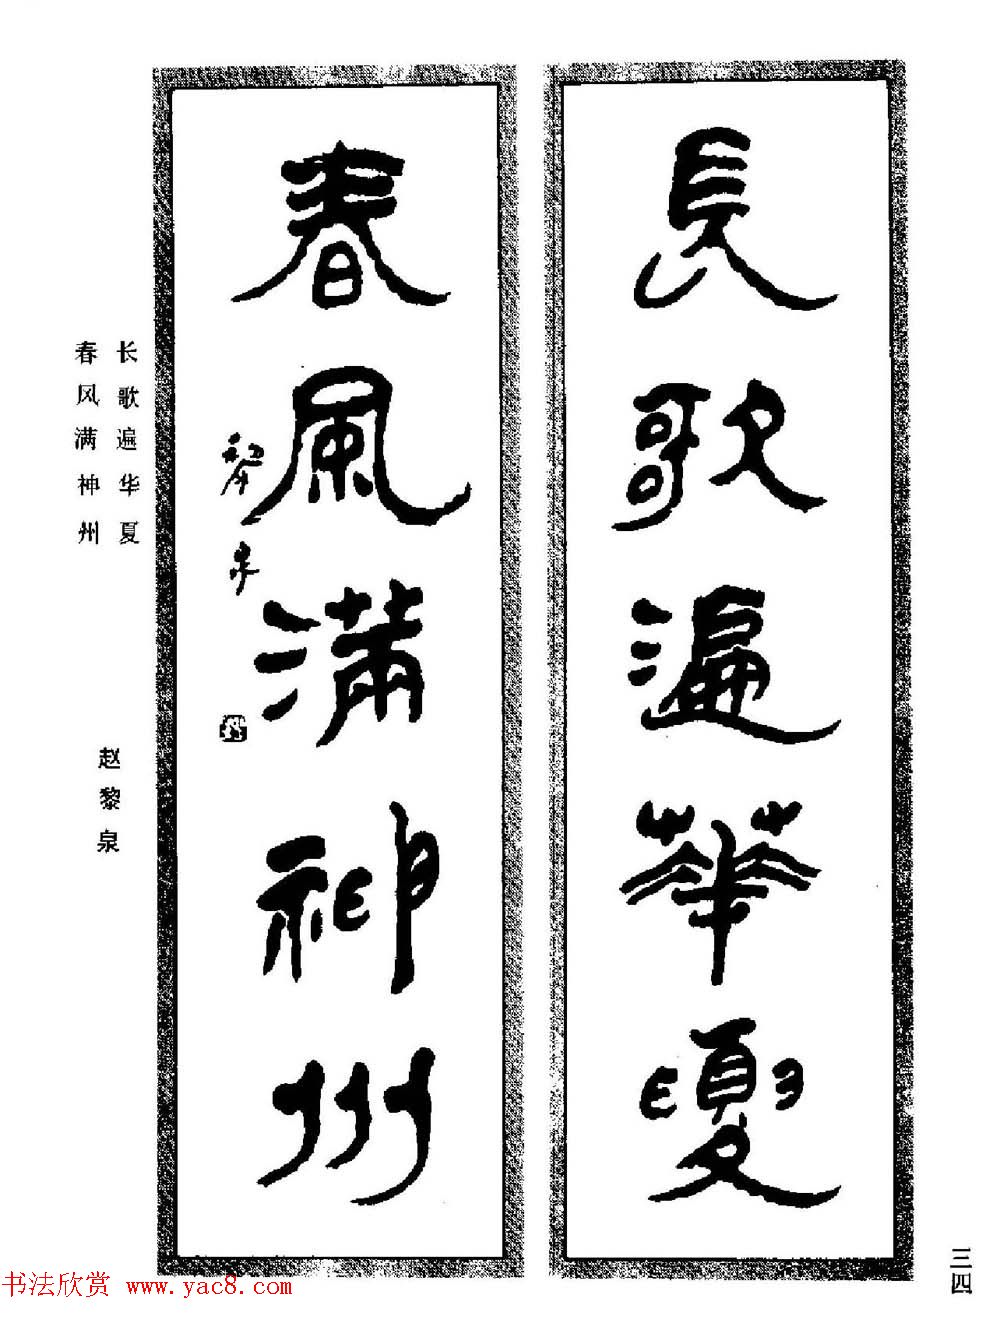 長歌遍華夏
春風滿神州
黎泉
长歌遍华夏
春风满神州
赵黎泉
三四
书法欣赏 www.yac8.com